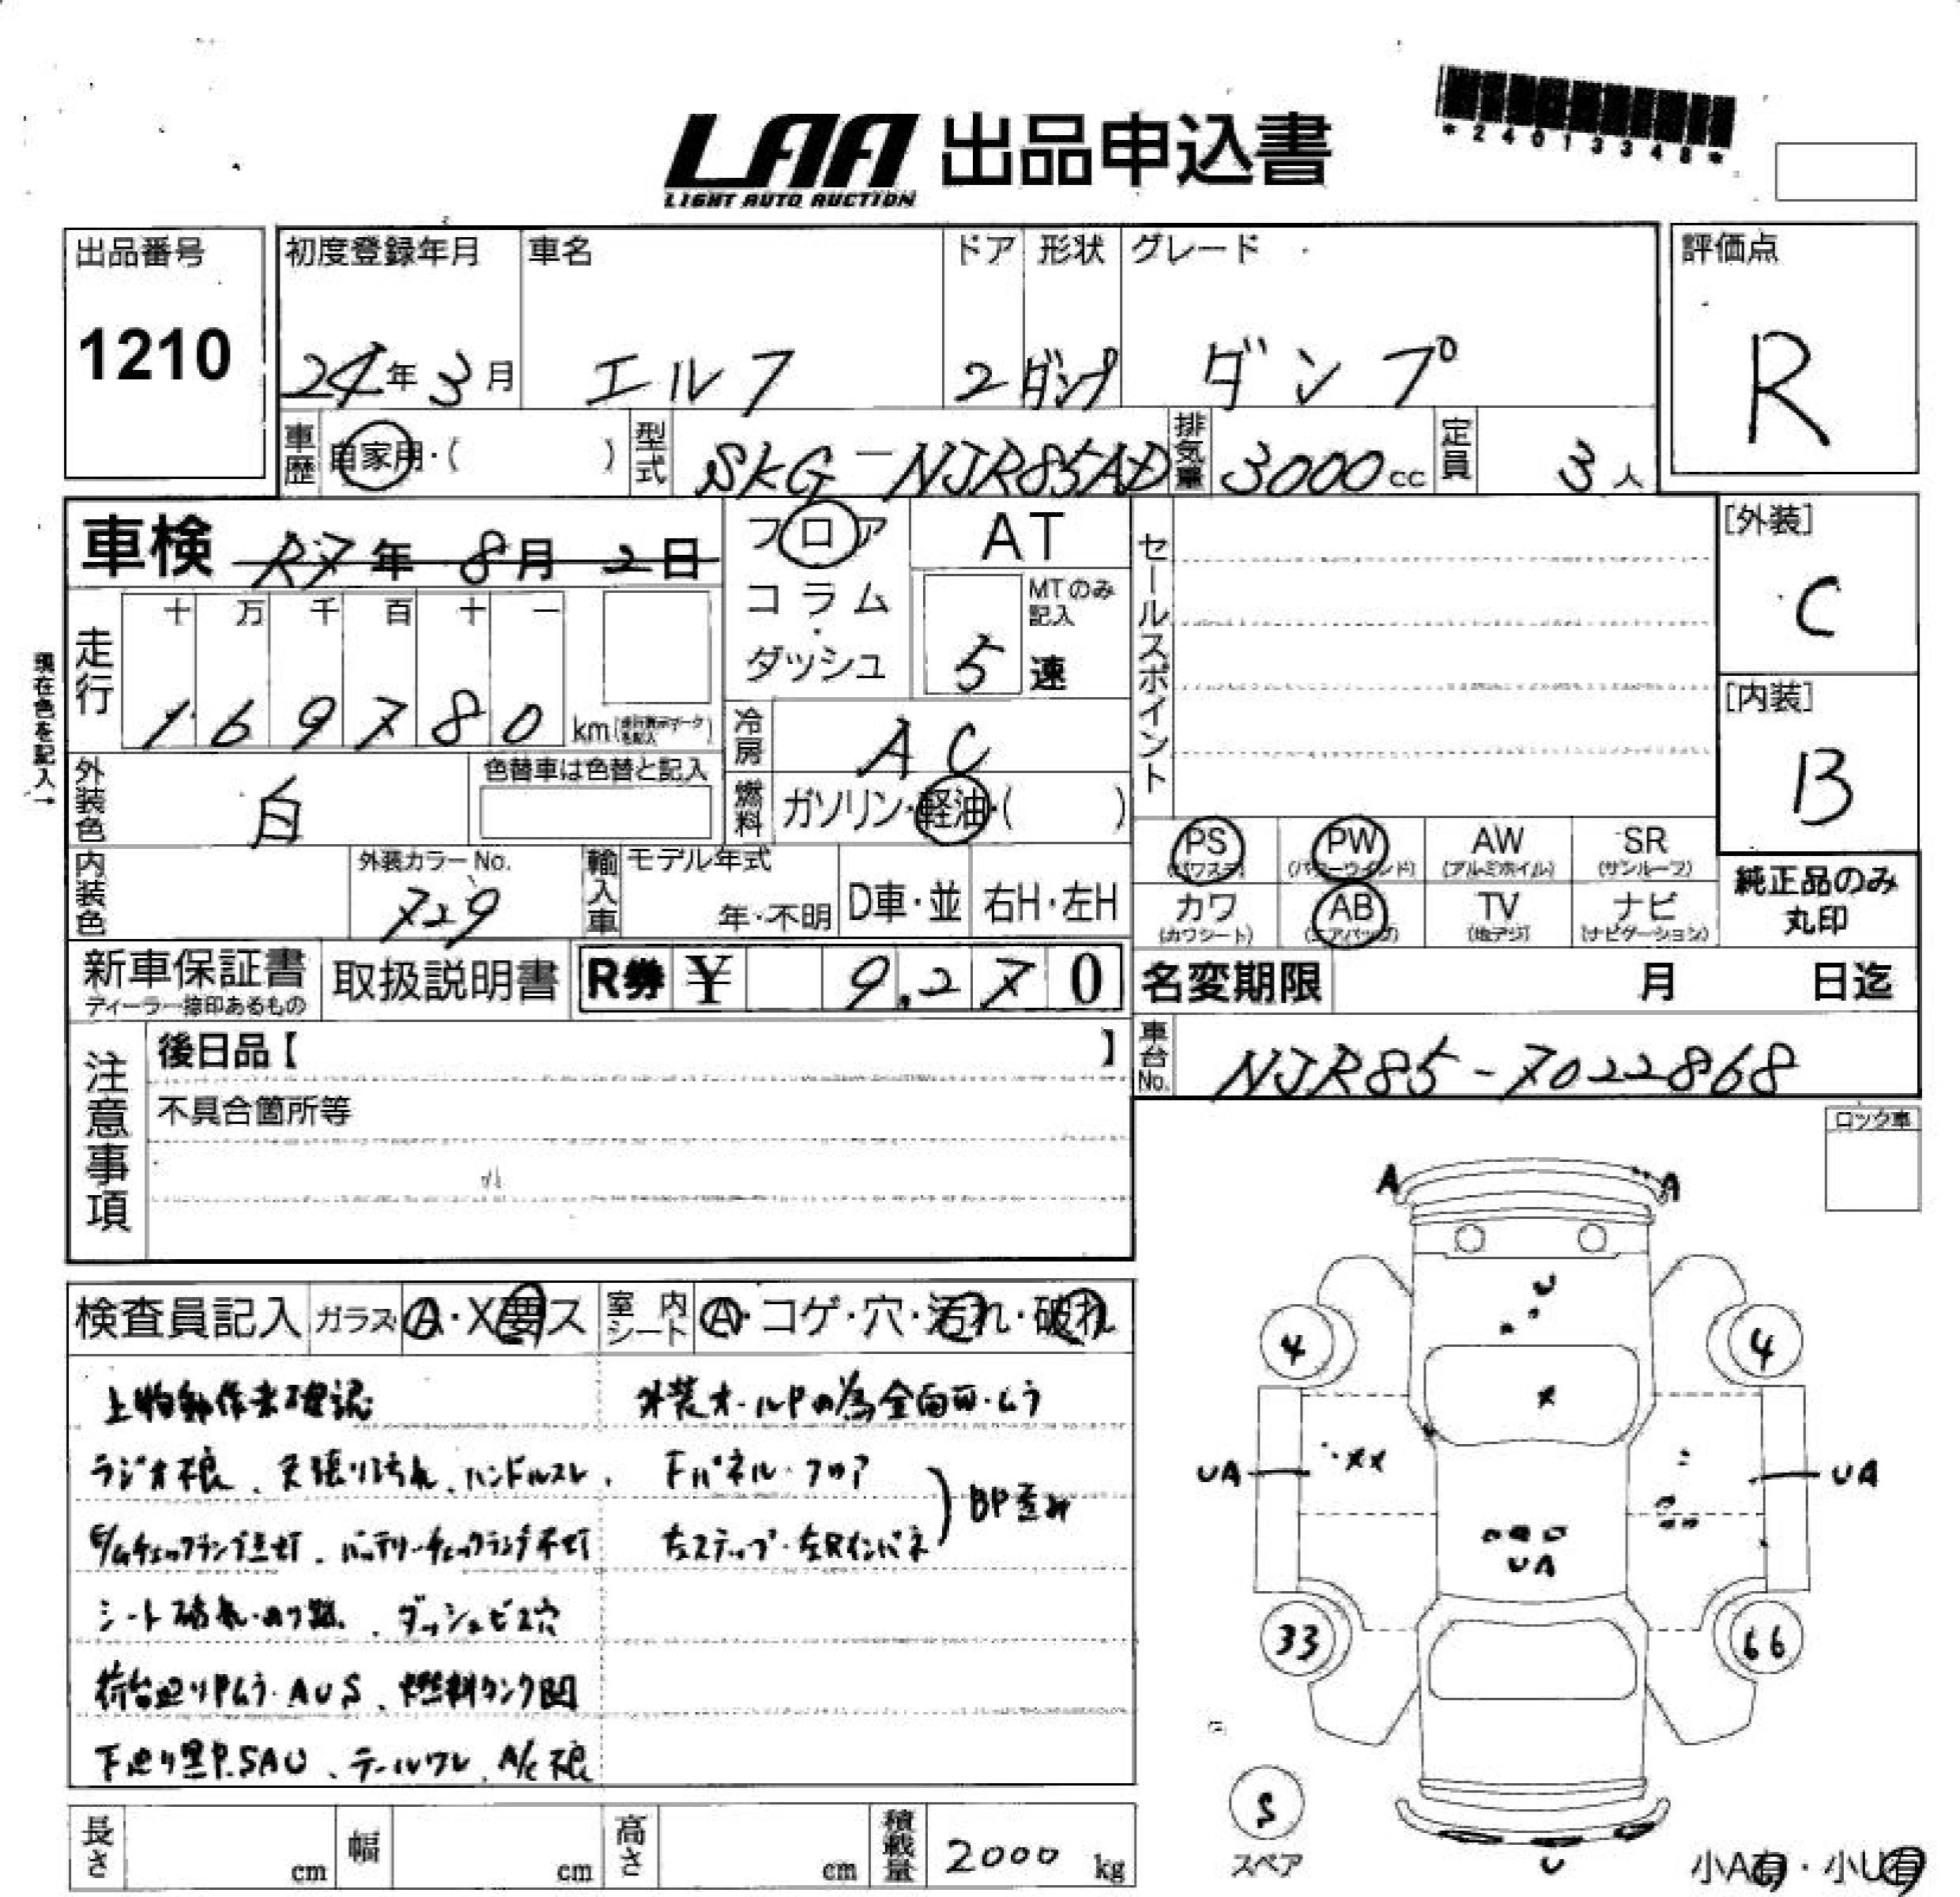 LAA 出品申込書
LIGHT AUTO AUCTION
*24013348*
出品番号
1210
初度登録年月 車名 ドア 形状 グレード
24年3月 エルフ 2 ダンプ ダンプ
評価点
R
車歴 自家用・( ) 型式 SKG-NJR85AD 排気量 3000cc 定員 3人
車検 R7年 8月 2日
フロア
コラム・
ダッシュ
AT
MTのみ記入
5 速
セールスポイント
[外装]
C
[内装]
B
現在色を記入→
走行 十 万 千 百 十 一
1 6 9 7 8 0 km
冷房 AC
外装色 白 色替車は色替と記入
燃料 ガソリン・軽油・( )
PS (パワステ) PW (パワーウインド) AW (アルミホイル) SR (サンルーフ)
カワ (カワシート) AB (エアバッグ) TV (地デジ) ナビ (ナビゲーション)
純正品のみ
丸印
内装色 外装カラーNo. 729
輸入車 モデル年式 年・不明 D車・並 右H・左H
新車保証書 ディーラー捺印あるもの 取扱説明書 R券 ¥ 9,270
名変期限 月 日迄
注意事項 後日品【 】
不具合箇所等
車台No. NJR85-7022868
ロック車
検査員記入 ガラス A・X要ス 室内シート A・コゲ・穴・汚れ・破れ
上物動作未確認
ラジオ不良、天張り汚れ、ハンドルスレ、
E/Gチェックランプ点灯、バッテリーチェックランプ不灯
シート破れ・、ダッシュビス穴
荷台廻りPムラ・AUS、燃料タンク凹
下廻り黒P.SAU、テールワレ、A/C不良
外装オールPの為全面凹・ムラ
Fパネル・フロア
左ステップ・左Rインパネ
BP歪み
A A
U
4 4
X
UA XX UA
UA
33 66
S
スペア
U
小A有・小U有
長さ cm 幅 cm 高さ cm 積載量 2000 kg